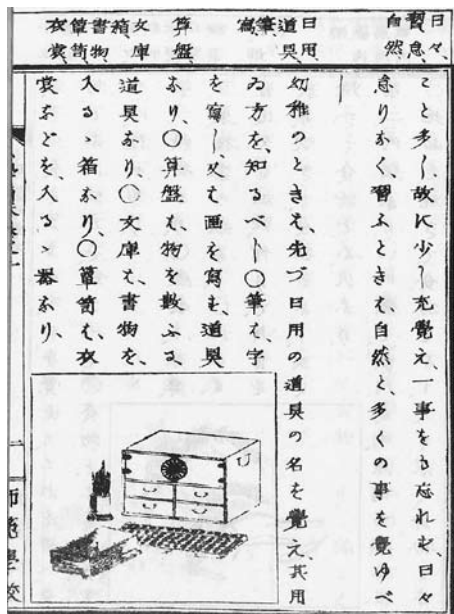 日々、
習、怠、
自然、
日用、
道具、
筆、
寫、
算盤、
文庫、
箱、
書物、
簞笥、
衣裳、
こと多し、故に少し充覺え、一事をも忘れず、日々
怠りなく習ふときは、自然と、多くの事を覺ゆべ
幼稚のときは、先づ日用の道具の名を覺え、其用
ゐ方を知るべし〇筆は、字
を寫し、又は画を寫す、道具
なり、〇算盤は、物を數ふる、
道具なり〇文庫は、書物を、
入る箱なり、〇簞笥は、衣
裳などを、入る器なり、
師範學校